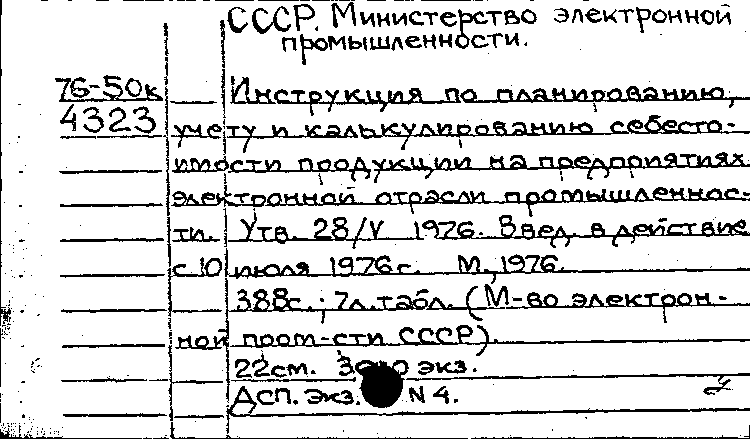 СССР. Министерство электронной
промышленности.
76-50к Инструкция по планированию,
4323 учету и калькулированию себесто-
имости продукции на предприятиях
электронной отрасли промышленнос-
ти. Утв. 28/V 1976. Введ. в действие
с 10 июля 1976г. М., 1976.
388с.; 7л.табл. (М-во электрон-
ной пром-сти СССР).
22см. экз.
ДСП. Экз. N 4.